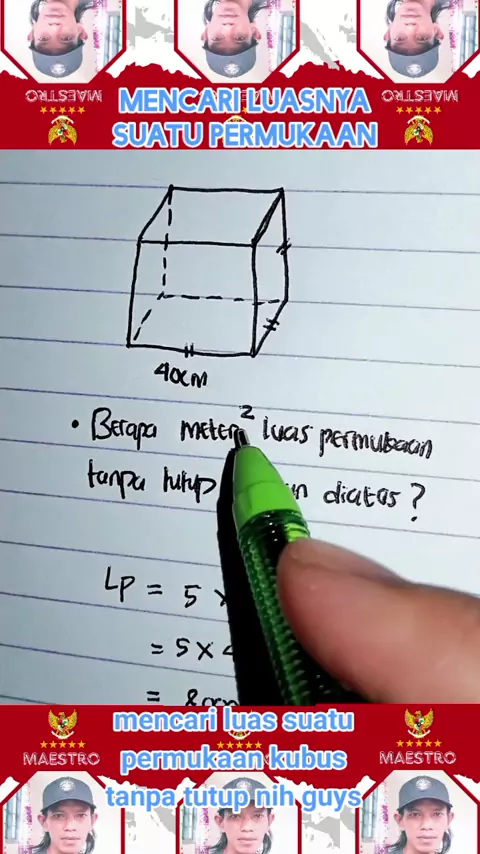 MAESTRO
MAESTRO
MENCARI LUASNYA
SUATU PERMUKAAN
40cm
• Berapa meter² luas permukaan
tanpa tutup diatas?
Lp = 5 ×
= 5 ×
= 800
mencari luas suatu
permukaan kubus
tanpa tutup nih guys
MAESTRO
MAESTRO